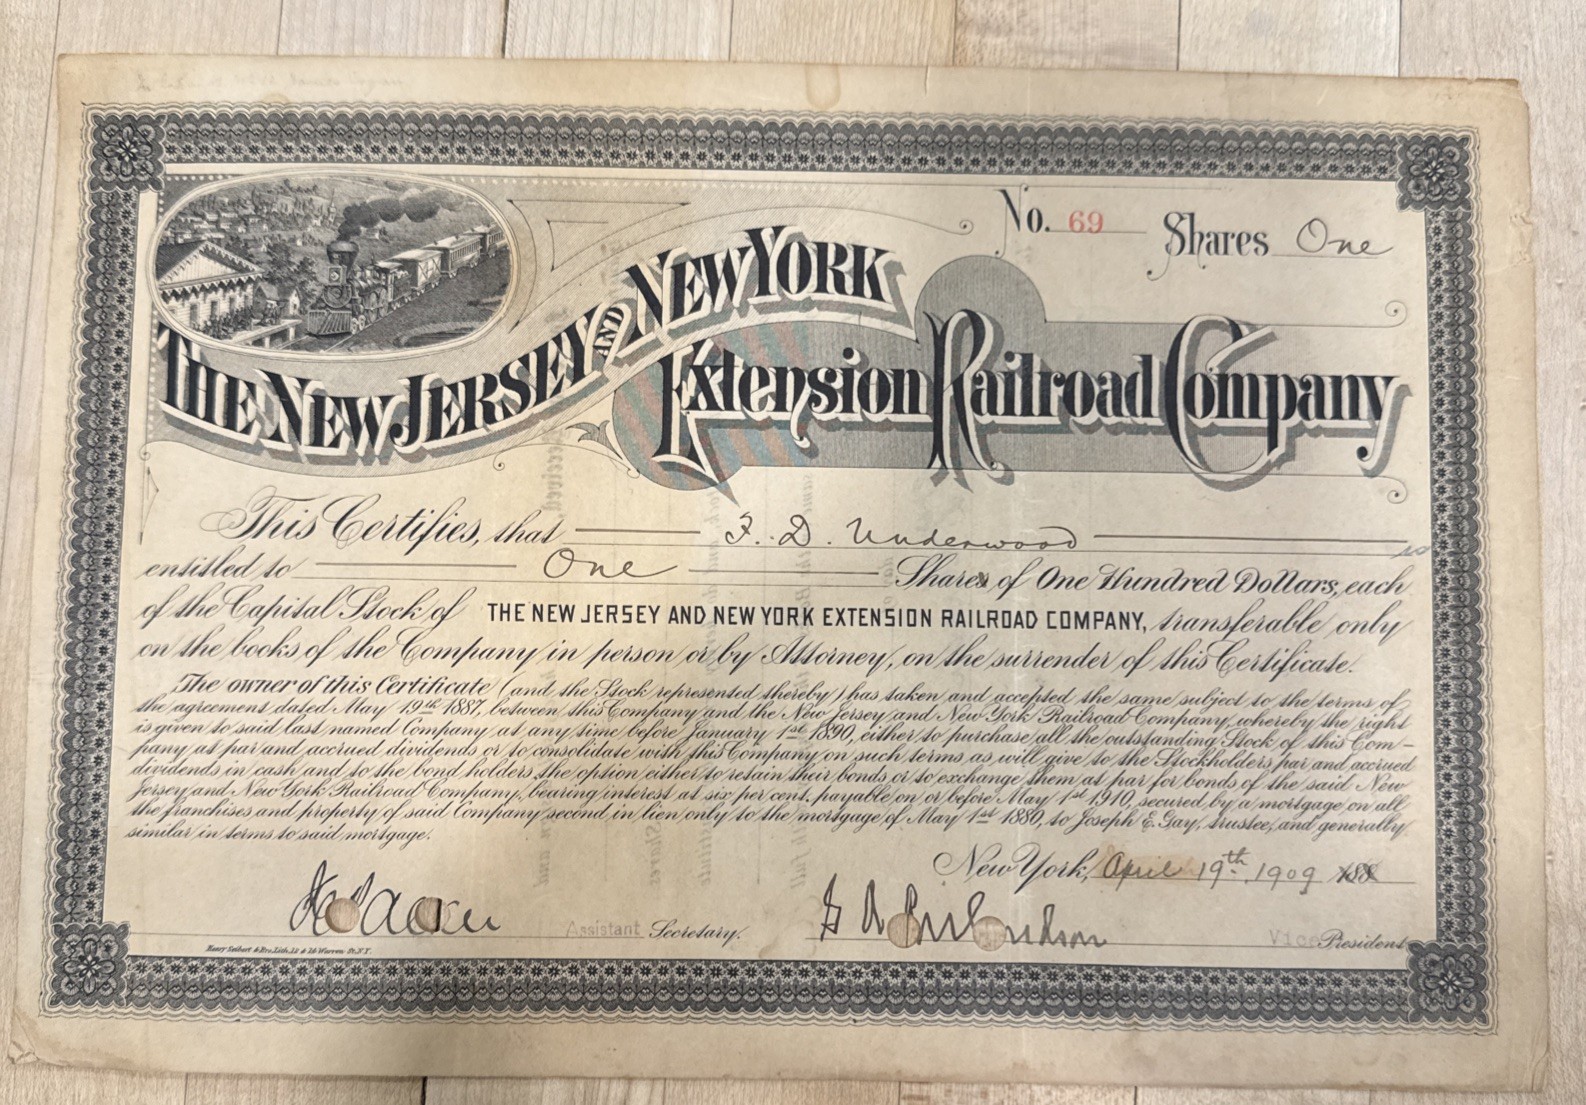 No. 69 Shares One
THE NEW JERSEY AND NEW YORK
Extension Railroad Company
This Certifies, that F. D. Underwood
entitled to One Shares of One Hundred Dollars, each
of the Capital Stock of THE NEW JERSEY AND NEW YORK EXTENSION RAILROAD COMPANY, transferable only
on the books of the Company in person or by Attorney, on the surrender of this Certificate.
The owner of this Certificate (and the Stock represented thereby) has taken and accepted the same subject to the terms of
the agreement dated May 19th 1887, between this Company and the New Jersey and New York Railroad Company, whereby the right
is given to said last named Company at any time before January 1st 1890, either to purchase all the outstanding Stock of this Com-
pany at par and accrued dividends or to consolidate with this Company on such terms as will give to the Stockholders par and accrued
dividends in cash and to the bond holders the option either to retain their bonds or to exchange them at par for bonds of the said New
Jersey and New York Railroad Company, bearing interest at six per cent. payable on or before May 1st 1910, secured by a mortgage on all
the franchises and property of said Company second in lien only to the mortgage of May 1st 1880, to Joseph E. Gay, trustee, and generally
similar in terms to said mortgage.
New York, April 19th 1909 188
Assistant Secretary.
Vice President
Henry Seibert & Bro. Lith. 12 & 16 Warren St. N.Y.